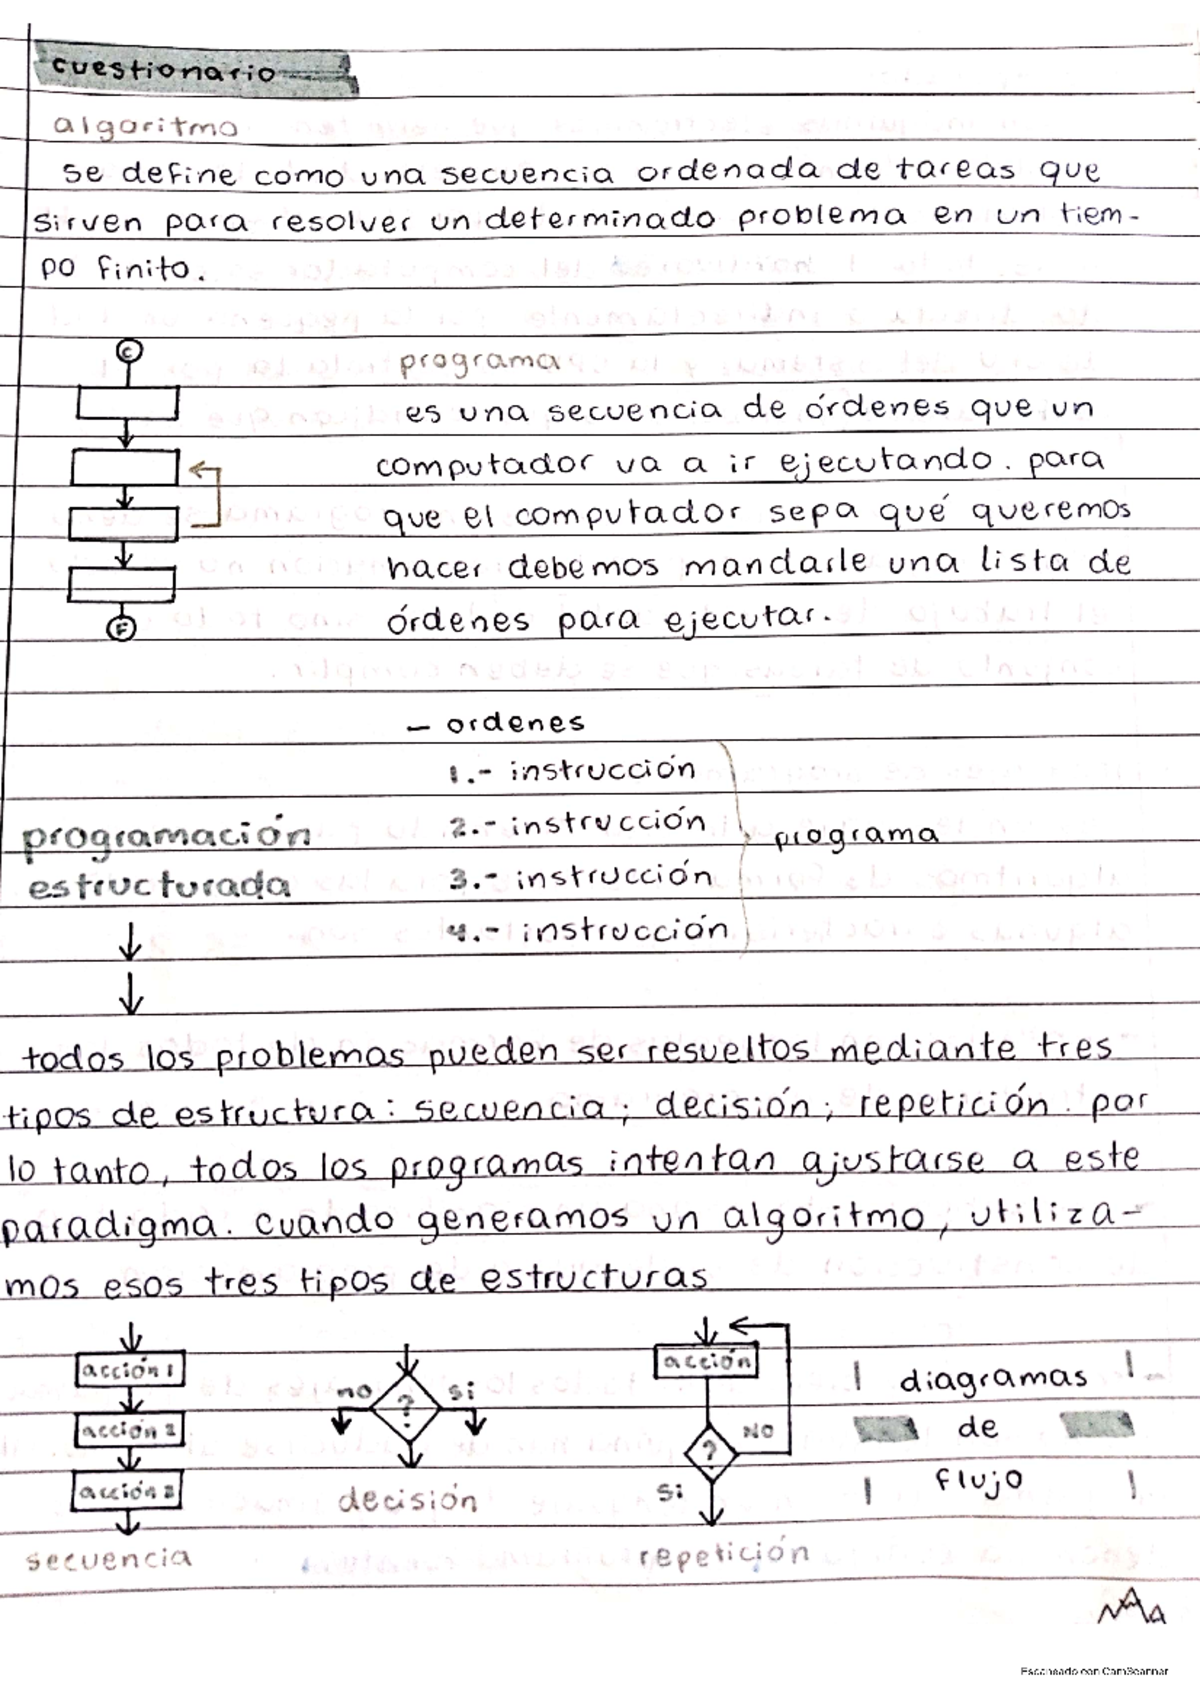 cuestionario
algoritmo
se define como una secuencia ordenada de tareas que
sirven para resolver un determinado problema en un tiem-
po finito.
C
F
programa
es una secuencia de órdenes que un
computador va a ir ejecutando. para
que el computador sepa qué queremos
hacer debemos mandarle una lista de
órdenes para ejecutar.
- ordenes
1.- instrucción
2.- instrucción
3.- instrucción
4.- instrucción
programa
programación
estructurada
todos los problemas pueden ser resueltos mediante tres
tipos de estructura: secuencia; decisión; repetición. por
lo tanto, todos los programas intentan ajustarse a este
paradigma. cuando generamos un algoritmo, utiliza-
mos esos tres tipos de estructuras
acción 1
acción 2
acción 3
secuencia
no ? si
decisión
acción
? NO
si
repetición
diagramas
de
flujo
Escaneado con CamScanner